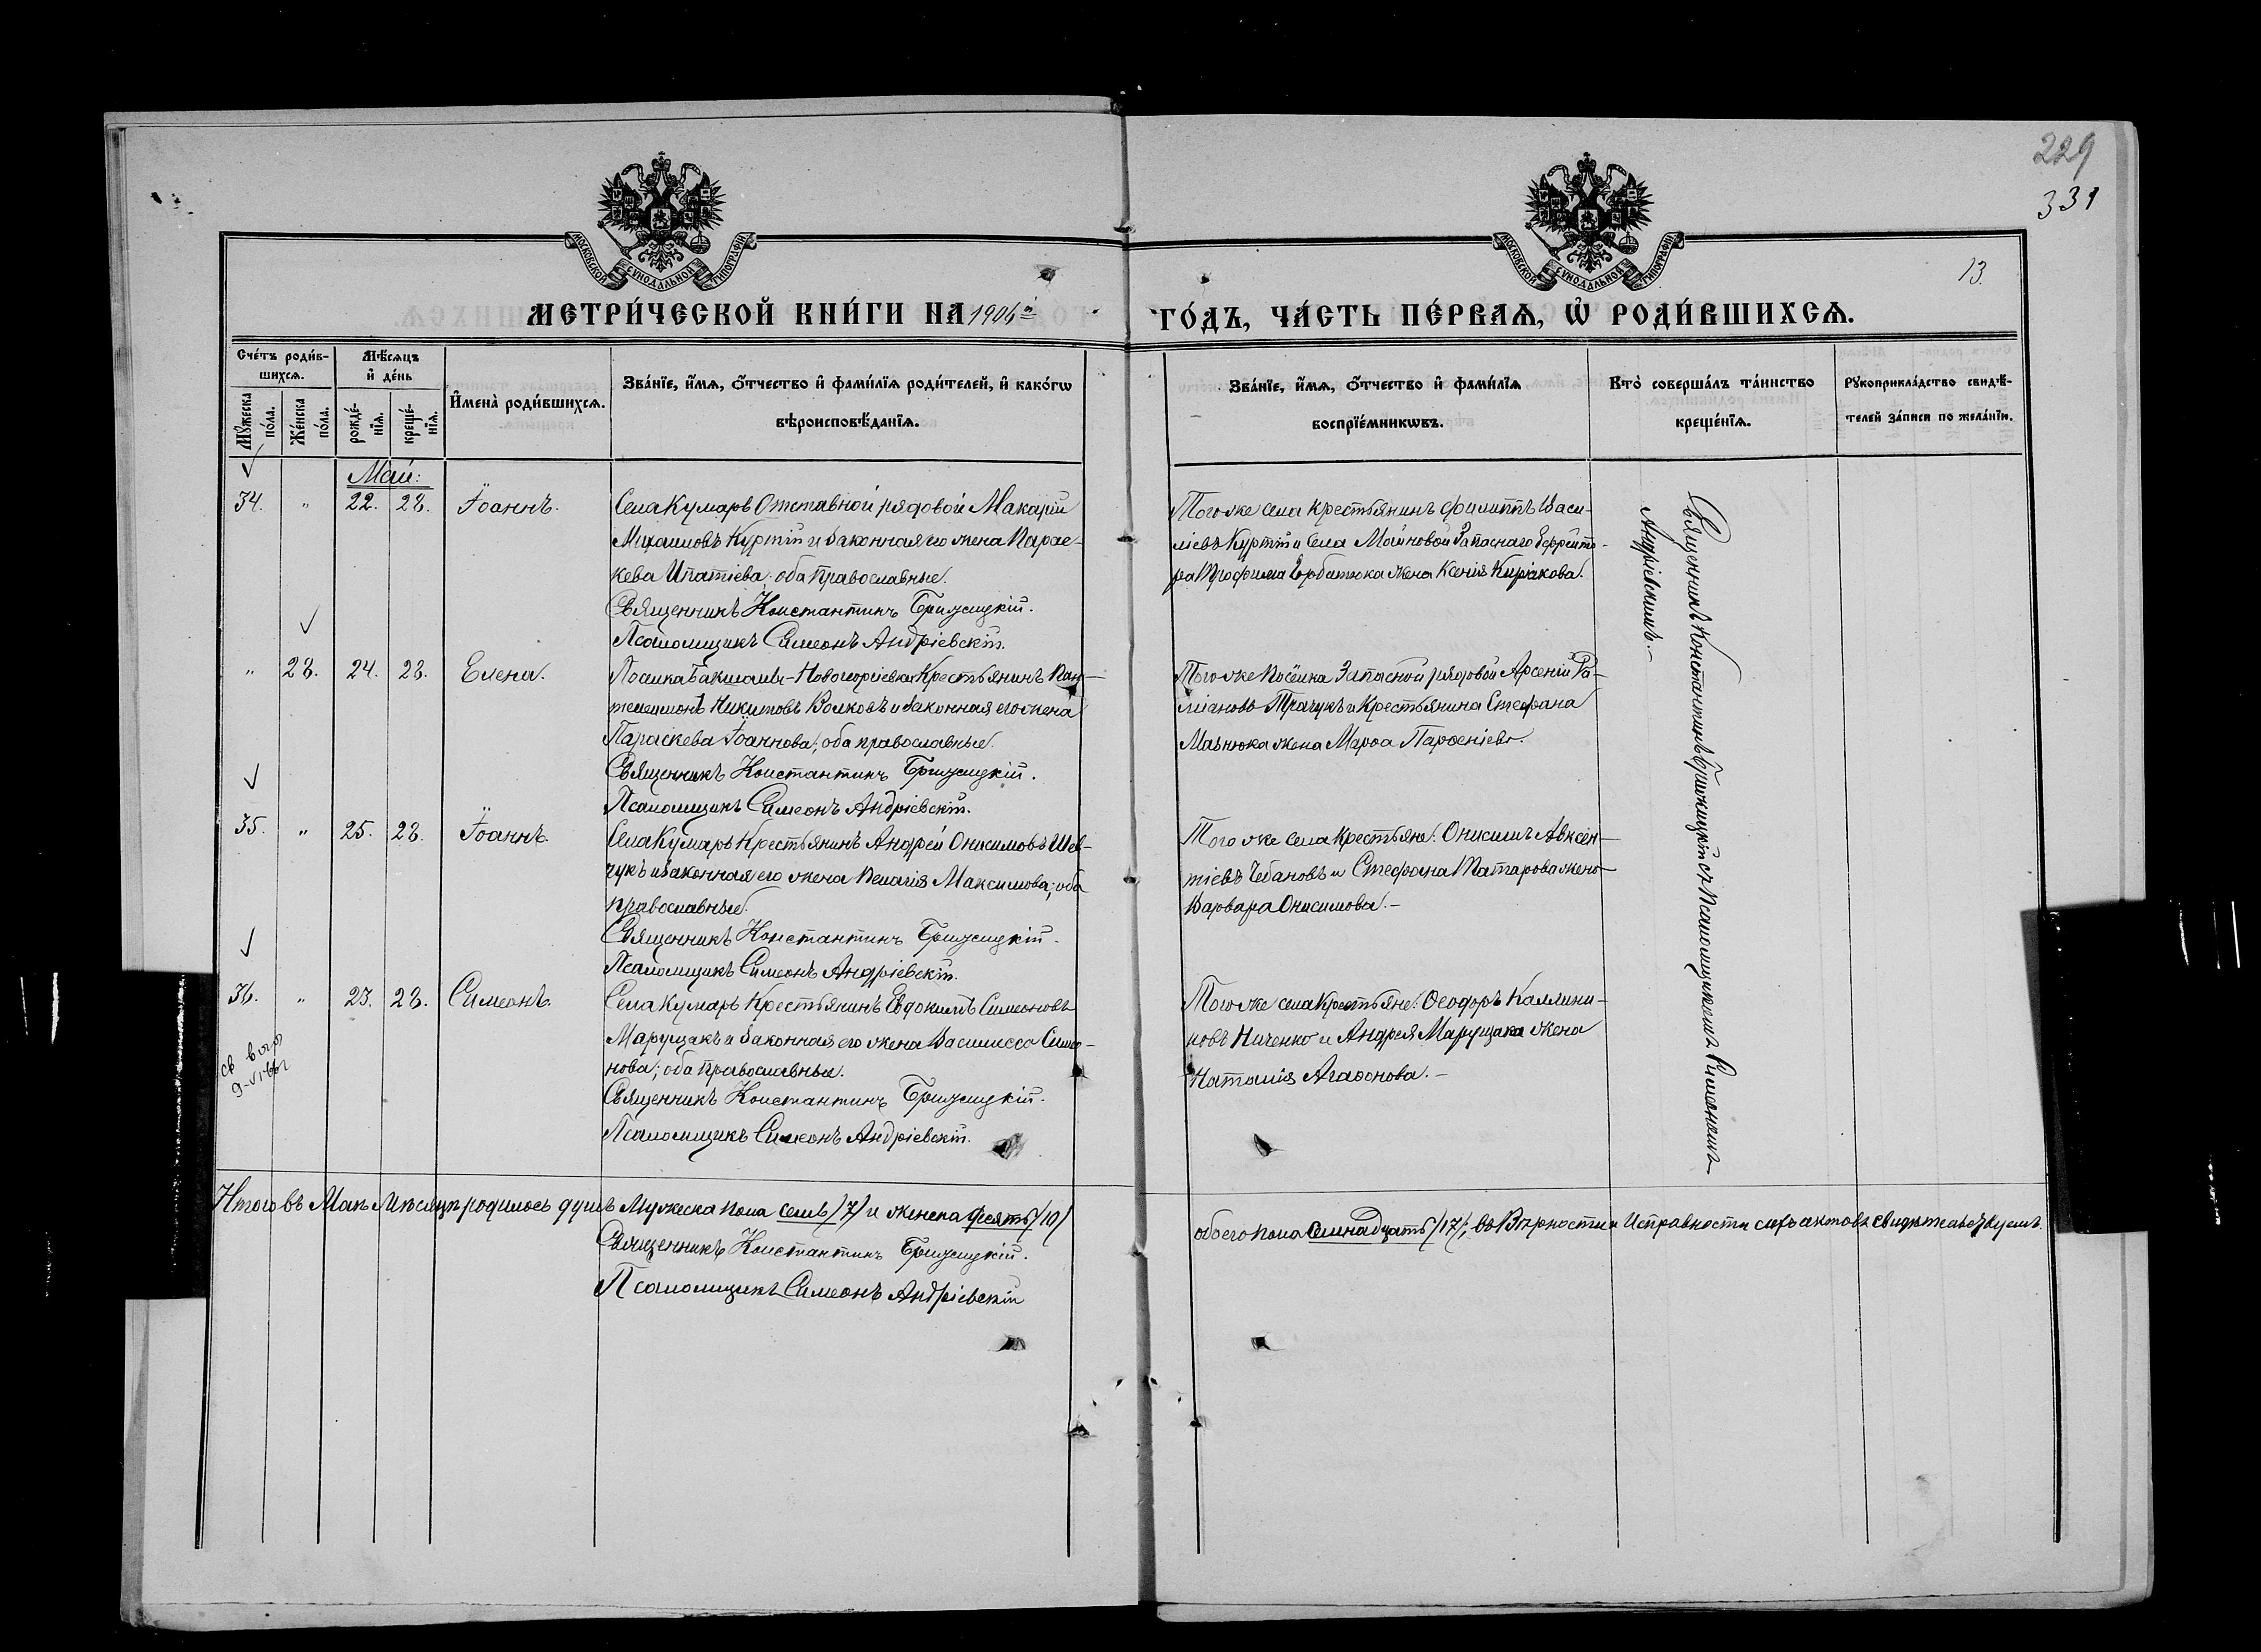 229
331
13.
МОСКОВСКОЙ СѴНОДАЛЬНОЙ ТИПОГРАФІИ
МОСКОВСКОЙ СѴНОДАЛЬНОЙ ТИПОГРАФІИ
МЕТРИ́ЧЕСКОЙ КНИ́ГИ НА 1906й
ГО́ДЪ, ЧА́СТЬ ПЕ́РВАѦ, Ѡ҆ РОДИ́ВШИХСѦ.
Сче́тъ роди́в-
шихсѧ.
Мꙋ́жеска по́ла.
Же́нска по́ла.
Мѣ́сѧцъ
и҆ де́нь
рожде́-
нїѧ.
креще́-
нїѧ.
И҆мена̀ роди́вшихсѧ.
Зва́нїе, и҆́мѧ, ѻ҆́тчество и҆ фами́лїѧ роди́телей, и҆ како́гѡ
вѣроисповѣ́данїѧ.
Зва́нїе, и҆́мѧ, ѻ҆́тчество и҆ фами́лїѧ
воспрїе́мникѡвъ.
Кто̀ соверша́лъ та́инство
креще́нїѧ.
Рꙋкоприкла́дство свидѣ́-
телей за́писи по жела́нїю.
Май:
34. " 22. 28. Іоаннъ.
Села Кумаръ Отставной рядовой Макарій
Михаиловъ Куртій и Законная его жена Парас-
кева Ипатіева; оба православные.
Священникъ Константинъ Брижицкій.
Псаломщикъ Симеонъ Андріевскій.
Того же села крестьянинъ Филиппъ Васи-
ліевъ Куртій и Села Майновой Запаснаго Ефрейто-
ра Трофима Горбатюка жена Ксенія Киріакова.
" 28. 24. 28. Елена.
Поселка Бакшалы-Новогеоргіевка Крестьянинъ Пан-
телеимонъ Никитовъ Волковъ и Законная его жена
Параскева Іоаннова; оба православные.
Священникъ Константинъ Брижицкій.
Псаломщикъ Симеонъ Андріевскій.
Того же посёлка Запасной рядовой Арсеній
Трачукъ и Крестьянина Стефана
жена Марѳа Парѳеніева.
35. " 25. 28. Іоаннъ.
Села Кумаръ Крестьянинъ Андрей Онисимовъ Шев-
чукъ и Законная его жена Пелагія Максимова; оба
православные.
Священникъ Константинъ Брижицкій.
Псаломщикъ Симеонъ Андріевскій.
Того же села Крестьяне: Онисимъ Авксен-
тіевъ Чебановъ и Стефана Татарова жена
Варвара Онисимова.-
36. " 23. 28. Симеонъ.
Села Кумаръ Крестьянинъ Евдокимъ Симеоновъ
Марущакъ и Законная его жена Василисса Симе-
нова; оба православные.
Священникъ Константинъ Брижицкій.
Псаломщикъ Симеонъ Андріевскій.
Того же села Крестьяне: Ѳеодоръ Каллини-
ковъ Ниченко и Андрея Марущака жена
Наталія Агаѳонова.-
Священникъ Константинъ Брижицкій съ Псаломщикомъ Симеономъ
Андріевскимъ.-
Итого въ Маѣ Мѣсяцѣ родилось душъ Мужеска пола семь /7/ и женска десять /10/
обоего пола Семнадцать /17/; въ Вѣрности и Исправности сихъ актовъ свидѣтельствуемъ.
Священникъ Константинъ Брижицкій.
Псаломщикъ Симеонъ Андріевскій